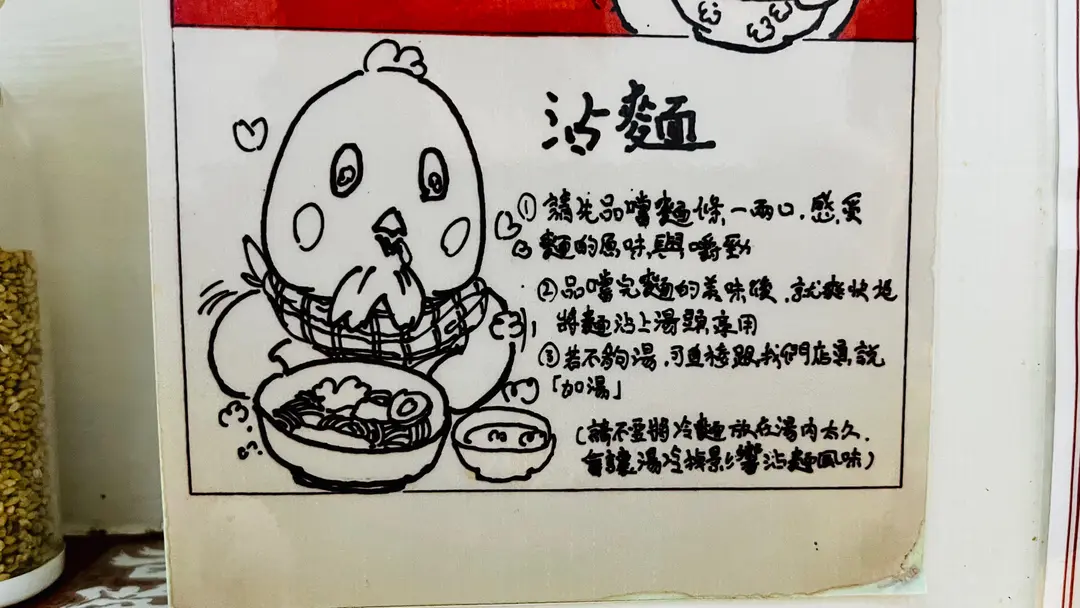 沾麵
①請先品嚐麵條一兩口,感受
麵的原味與嚼勁
②品嚐完麵的美味後,就爽快地
將麵沾上湯頭享用
③若不夠湯,可直接跟我們店員說
「加湯」
(請不要將冷麵放在湯內太久,
會讓湯冷掉影響沾麵風味)